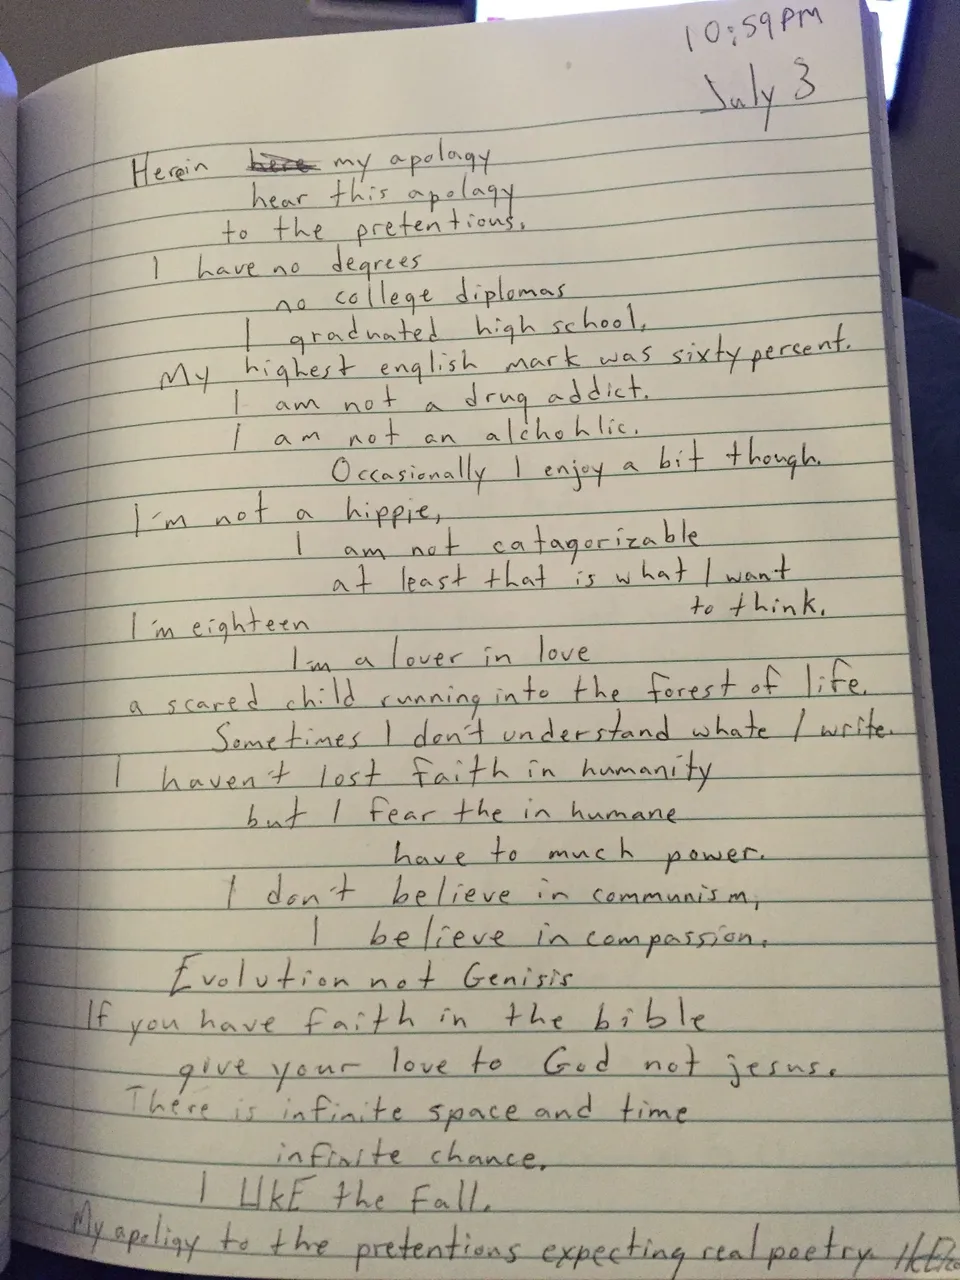 10:59PM
July 3
Herein here my apology
hear this apology
to the pretentious.
I have no degrees
no college diplomas
I graduated high school,
My highest english mark was sixty percent.
I am not a drug addict.
I am not an alchohlic.
Occasionally I enjoy a bit though.
I'm not a hippie,
I am not catagorizable
at least that is what I want
to think.
I'm eighteen
I'm a lover in love
a scared child running into the forest of life.
Sometimes I don't understand whate I write.
I haven't lost faith in humanity
but I fear the in humane
have to much power.
I don't believe in communism,
I believe in compassion.
Evolution not Genisis
If you have faith in the bible
give your love to God not jesus.
There is infinite space and time
infinite chance.
I LIKE the Fall.
My apoligy to the pretentions expecting real poetry.